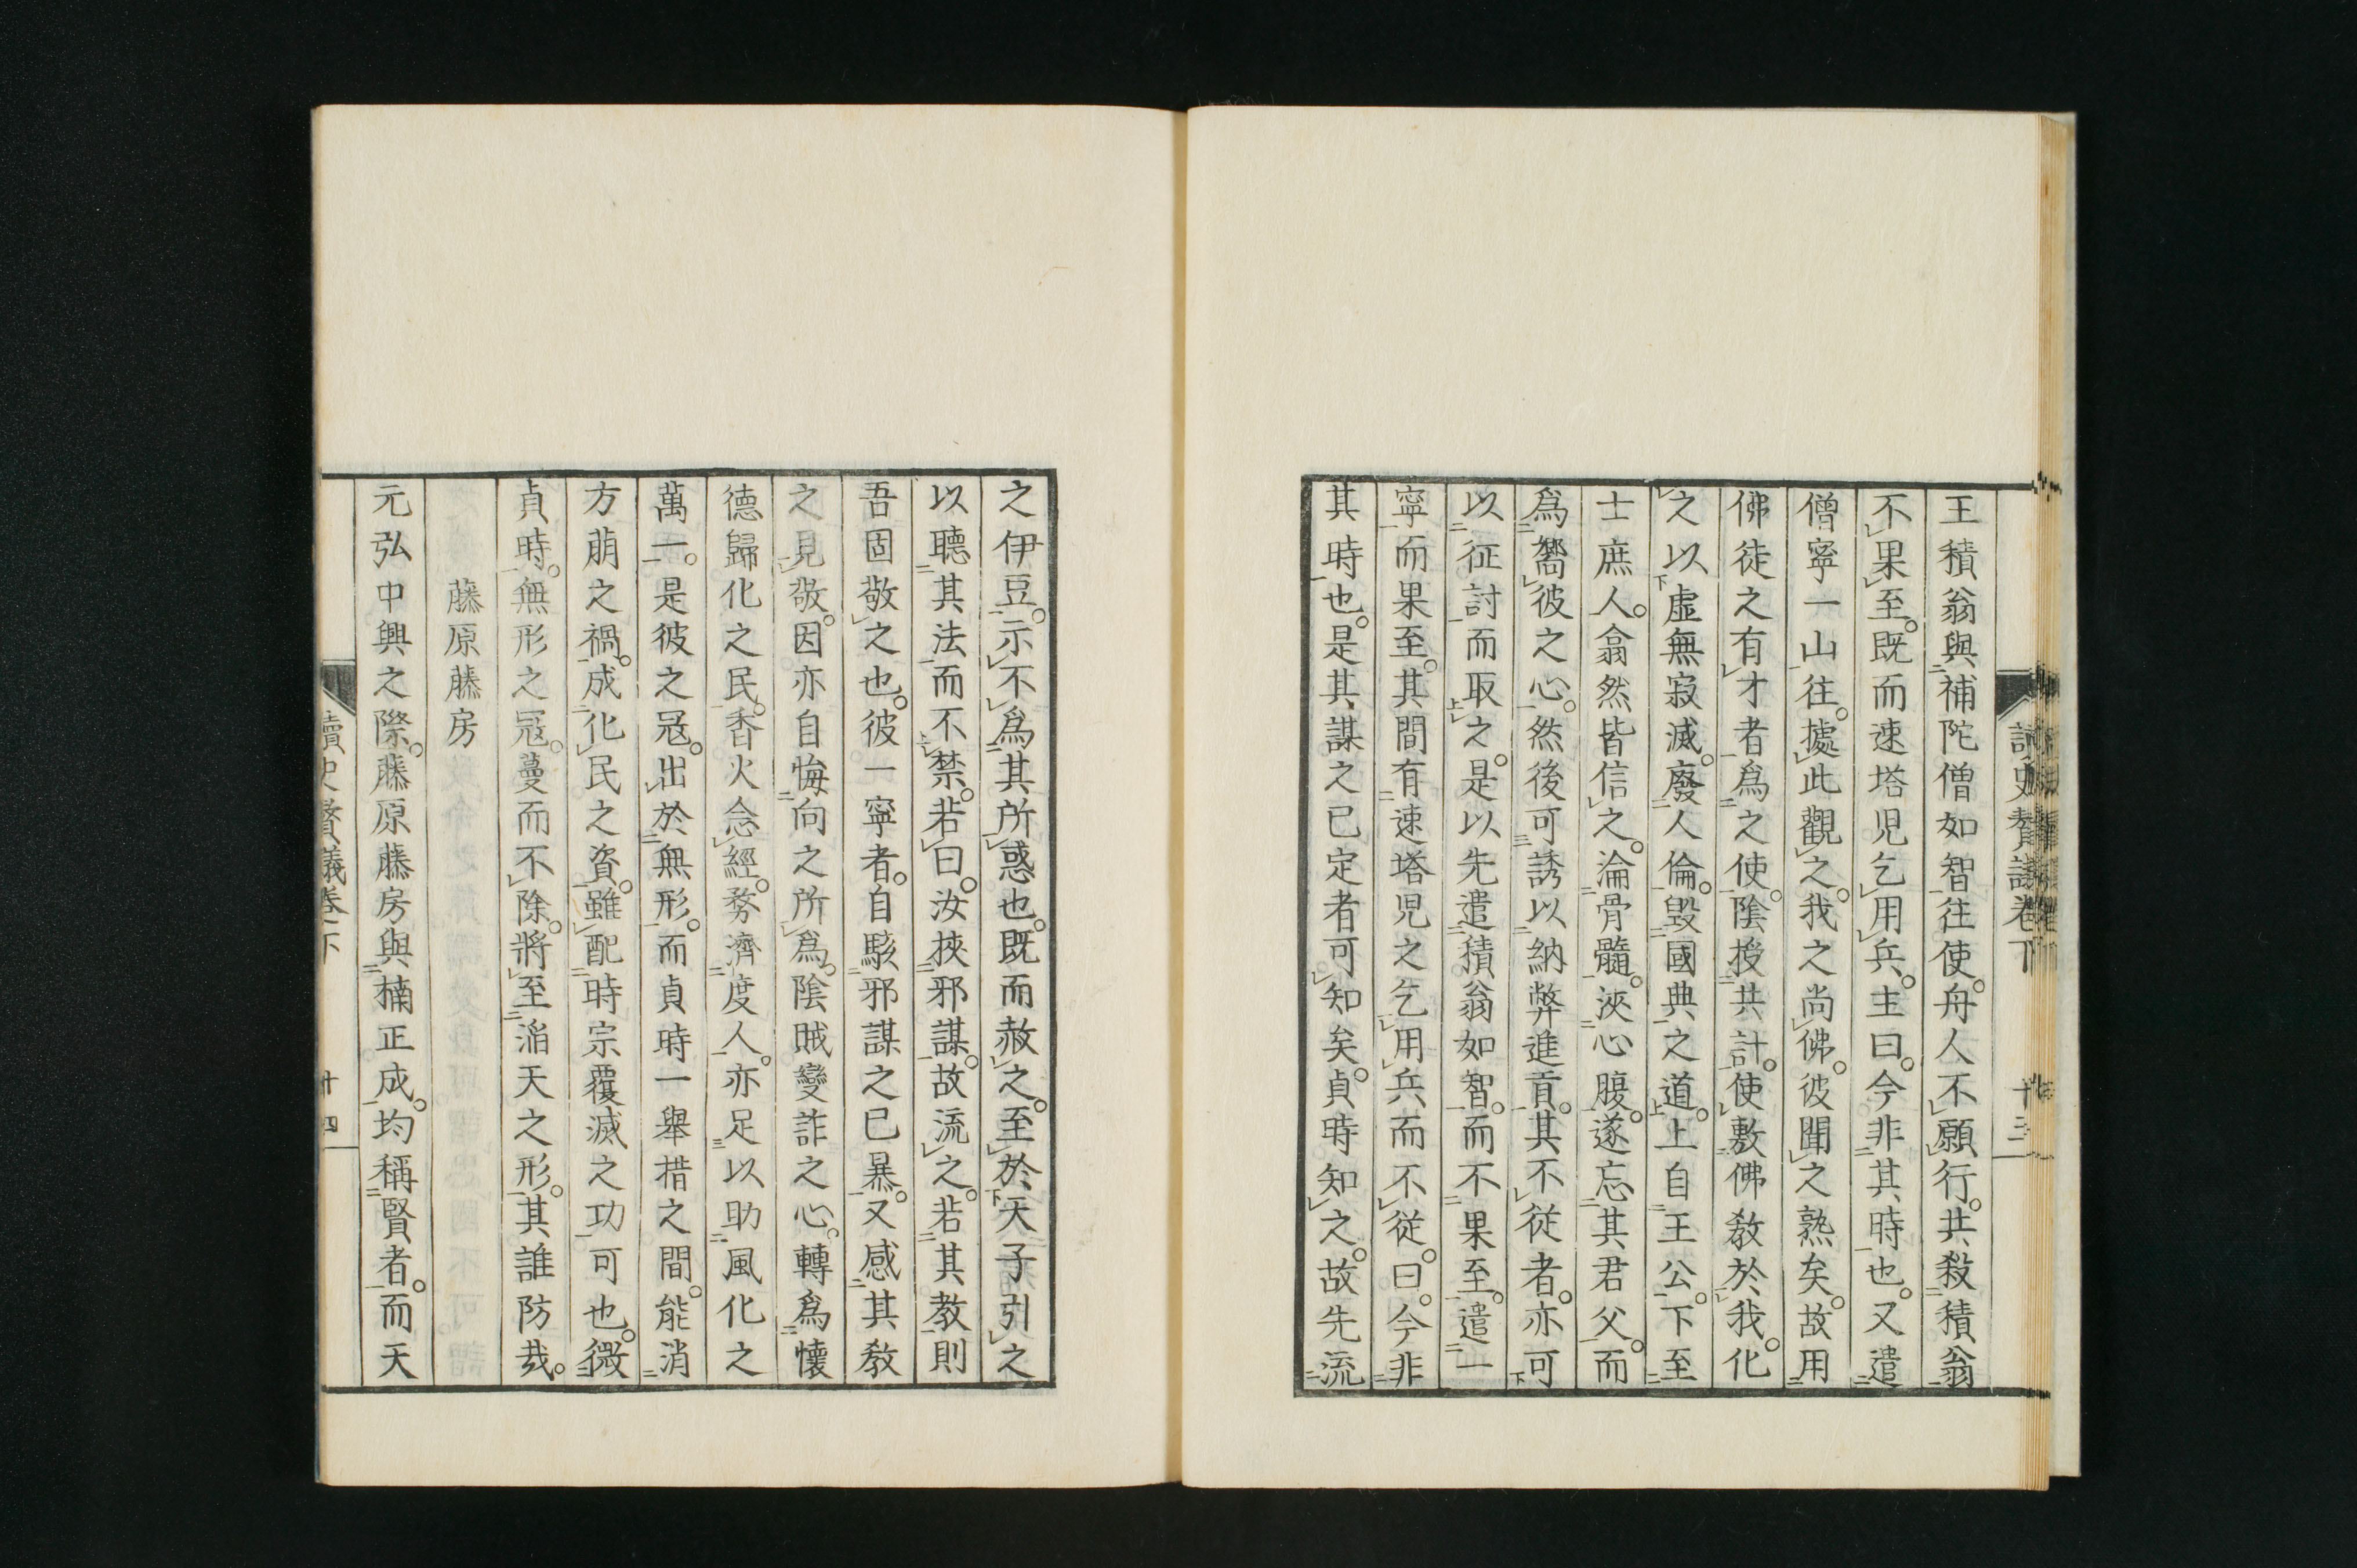 王積翁與補陀僧如智往使。舟人不願行。共殺積翁
不果至。既而速塔児乞用兵。主曰。今非其時也。又遣
僧寧一山往。據此觀之。我之尚佛。彼聞之熟矣。故用
佛徒之有才者爲之使。陰授共計。使敷佛教於我。化
之以虛無寂滅。廢人倫。毀國典之道。上自王公。下至
士庶人。翕然皆信之。淪骨髓。浹心腹。遂忘其君父。而
爲嚮彼之心。然後可誘以納弊進貢。其不從者。亦可
以征討而取之。是以先遣積翁如智。而不果至。遣一
寧而果至。其間有速塔児之乞用兵而不從。曰。今非
其時也。是其謀之已定者可知矣。貞時知之。故先流
讀史贅議卷下
十三
之伊豆。示不爲其所惑也。既而赦之。至於天子引之
以聽其法而不禁。若曰。汝挾邪謀。故流之。若其教則
吾固敬之也。彼一寧者。自駭邪謀之已暴。又感其教
之見敬。因亦自悔向之所爲。陰賊變詐之心。轉爲懷
德歸化之民。香火念經。務濟度人。亦足以助風化之
萬一。是彼之冦。出於無形。而貞時一舉措之間。能消
方萠之禍。成化民之資。雖配時宗覆滅之功可也。微
貞時。無形之冦。蔓而不除。將至滔天之形。其誰防哉。
藤原藤房
元弘中興之際。藤原藤房與楠正成。均稱賢者。而天
讀史贅議卷下
十四